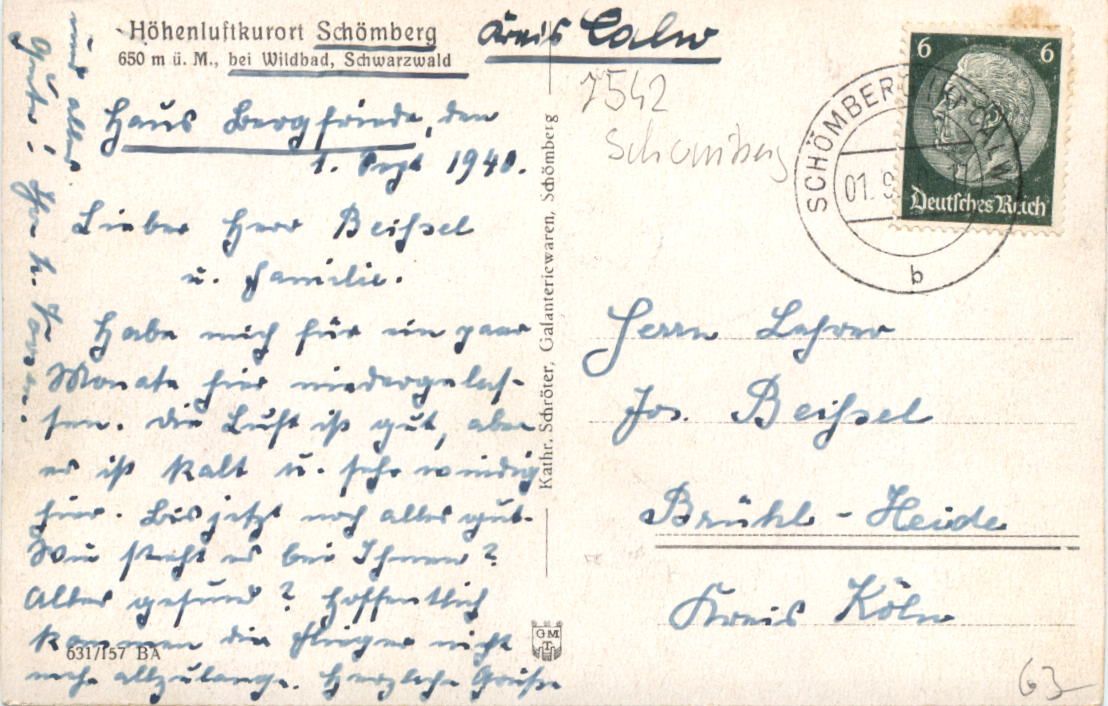 Höhenluftkurort Schömberg Kreis Calw
650 m ü. M., bei Wildbad, Schwarzwald
Haus Bergfriede, den
1. Sept 1940.
Lieber Herr Beissel
u. Familie.
Habe mich für ein paar
Monate hier niedergelas-
sen. die Luft ist gut, aber
es ist kalt u. sehr windig
hier. Bis jetzt noch alles gut.
Wie steht es bei Ihnen?
Alles gesund? Hoffentlich
kommen die Flieger nicht
mehr allzulange. Herzliche Grüsse
und alles
Gute!
631/157 BA
Kathr. Schröter, Galanteriewaren, Schömberg
GMT
7542
Schömberg
SCHÖMBERG (KR. CALW)
01. 9.
b
6 6
Deutsches Reich
Herrn Lehrer
Jos. Beissel
Brühl-Heide
Kreis Köln
63